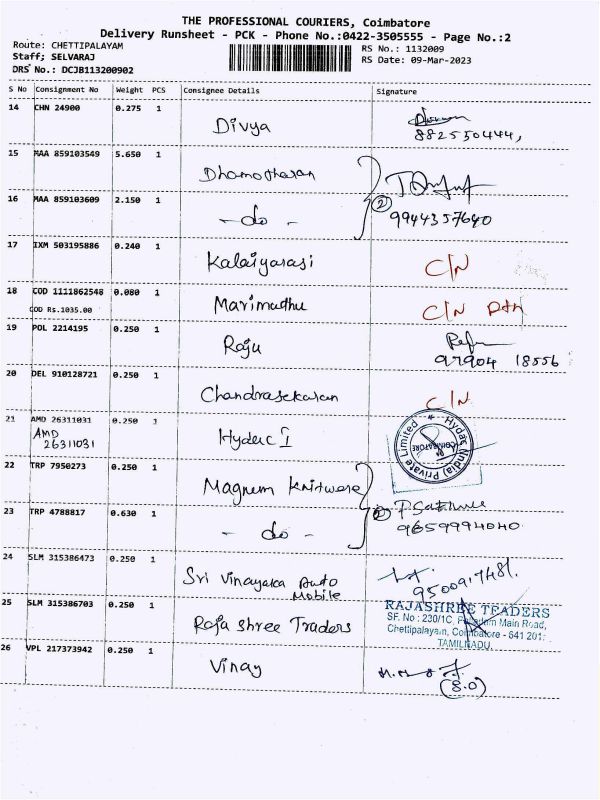 THE PROFESSIONAL COURIERS, Coimbatore
Delivery Runsheet - PCK - Phone No.:0422-3505555 - Page No.:2
Route: CHETTIPALAYAM
Staff; SELVARAJ
DRS No.: DCJB113200902
RS No.: 1132009
RS Date: 09-Mar-2023
S No Consignment No Weight PCS Consignee Details Signature
14 CHN 24900 0.275 1 Divya
882550444,
15 MAA 859103549 5.650 1 Dhamotharan
16 MAA 859103609 2.150 1 - do - ②
9944357640
17 IXM 503195886 0.240 1 Kalaiyarasi C/N
18 COD 1111862548 0.080 1 Marimuthu C/N
COD Rs.1035.00
19 POL 2214195 0.250 1 Raju
97904 18556
20 DEL 910128721 0.250 1 Chandrasekaran C/N
21 AMD 26311031 0.250 1 Hydac I
AMD
26311031
Hydac (India) Private Limited
COIMBATORE
22 TRP 7950273 0.250 1 Magnum Knitware
23 TRP 4788817 0.630 1 - do - ②
9659994040
24 SLM 315386473 0.250 1 Sri Vinayaka Auto
Mobile
9500917481.
25 SLM 315386703 0.250 1 Raja Shree Traders
RAJASHREE TRADERS
SF. No : 230/1C, Palladam Main Road,
Chettipalayam, Coimbatore - 641 201.
TAMILNADU.
26 VPL 217373942 0.250 1 Vinay
(S.O)